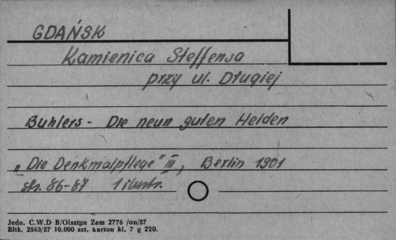 GDAŃSK
Kamienica Steffensa
przy ul. Długiej
Buhlers - Die neun guten Helden
„Die Denkmalpflege" III, Berlin 1901
str. 86-87 1 ilustr.
Jedn. C.W.D B/Olsztyn Zam 2776 /on/57
Bltk. 2563/57 10.000 szt. karton kl. 7 g 220.